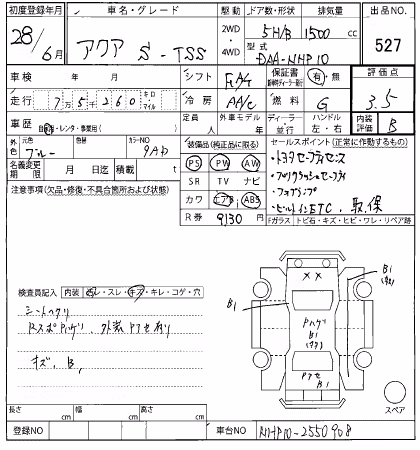 初度登録年月 車名・グレード 駆動 ドア数・形状 排気量 出品NO.
28年 6月 アクア S-TSS 2WD・4WD 5H/B 1500cc 527
型式 DAA-NHP10
車検 年 月 シフト FAT 保証書 有・無 評価点
走行 7万5千260 キロ・マイル 冷房 AAC 燃料 G 3.5
車歴 自家・レンタ・事業用( ) 定員 人 外車モデル 年 ディーラー・並行 ハンドル 左・右 内装評価 B
外色 元色 ブルー 色替 カラーNO
名義変更期限 月 日迄 積載 t
装備品(純正品に限る)
PS PW AW
SR TV ナビ
カワ エアB ABS
R券 9130円
セールスポイント(正常に作動するもの)
・トヨタセーフティセンス
・フォグランプ
・ビルトインETC、取、保
Fガラス トビ石・キズ・ヒビ・ワレ・リペア跡
注意事項(欠品・修復・不具合箇所および状態)
検査員記入 内装 ヨレ・スレ・キズ・キレ・コゲ・穴
シートヘタリ
RスポPハゲ、外装アセ有り
キズ、B、
B1
B1
Pハゲ
B1
Pアセ
B1
スペア
長さ cm 幅 cm 高さ cm
登録NO 車台NO NHP10-2550908